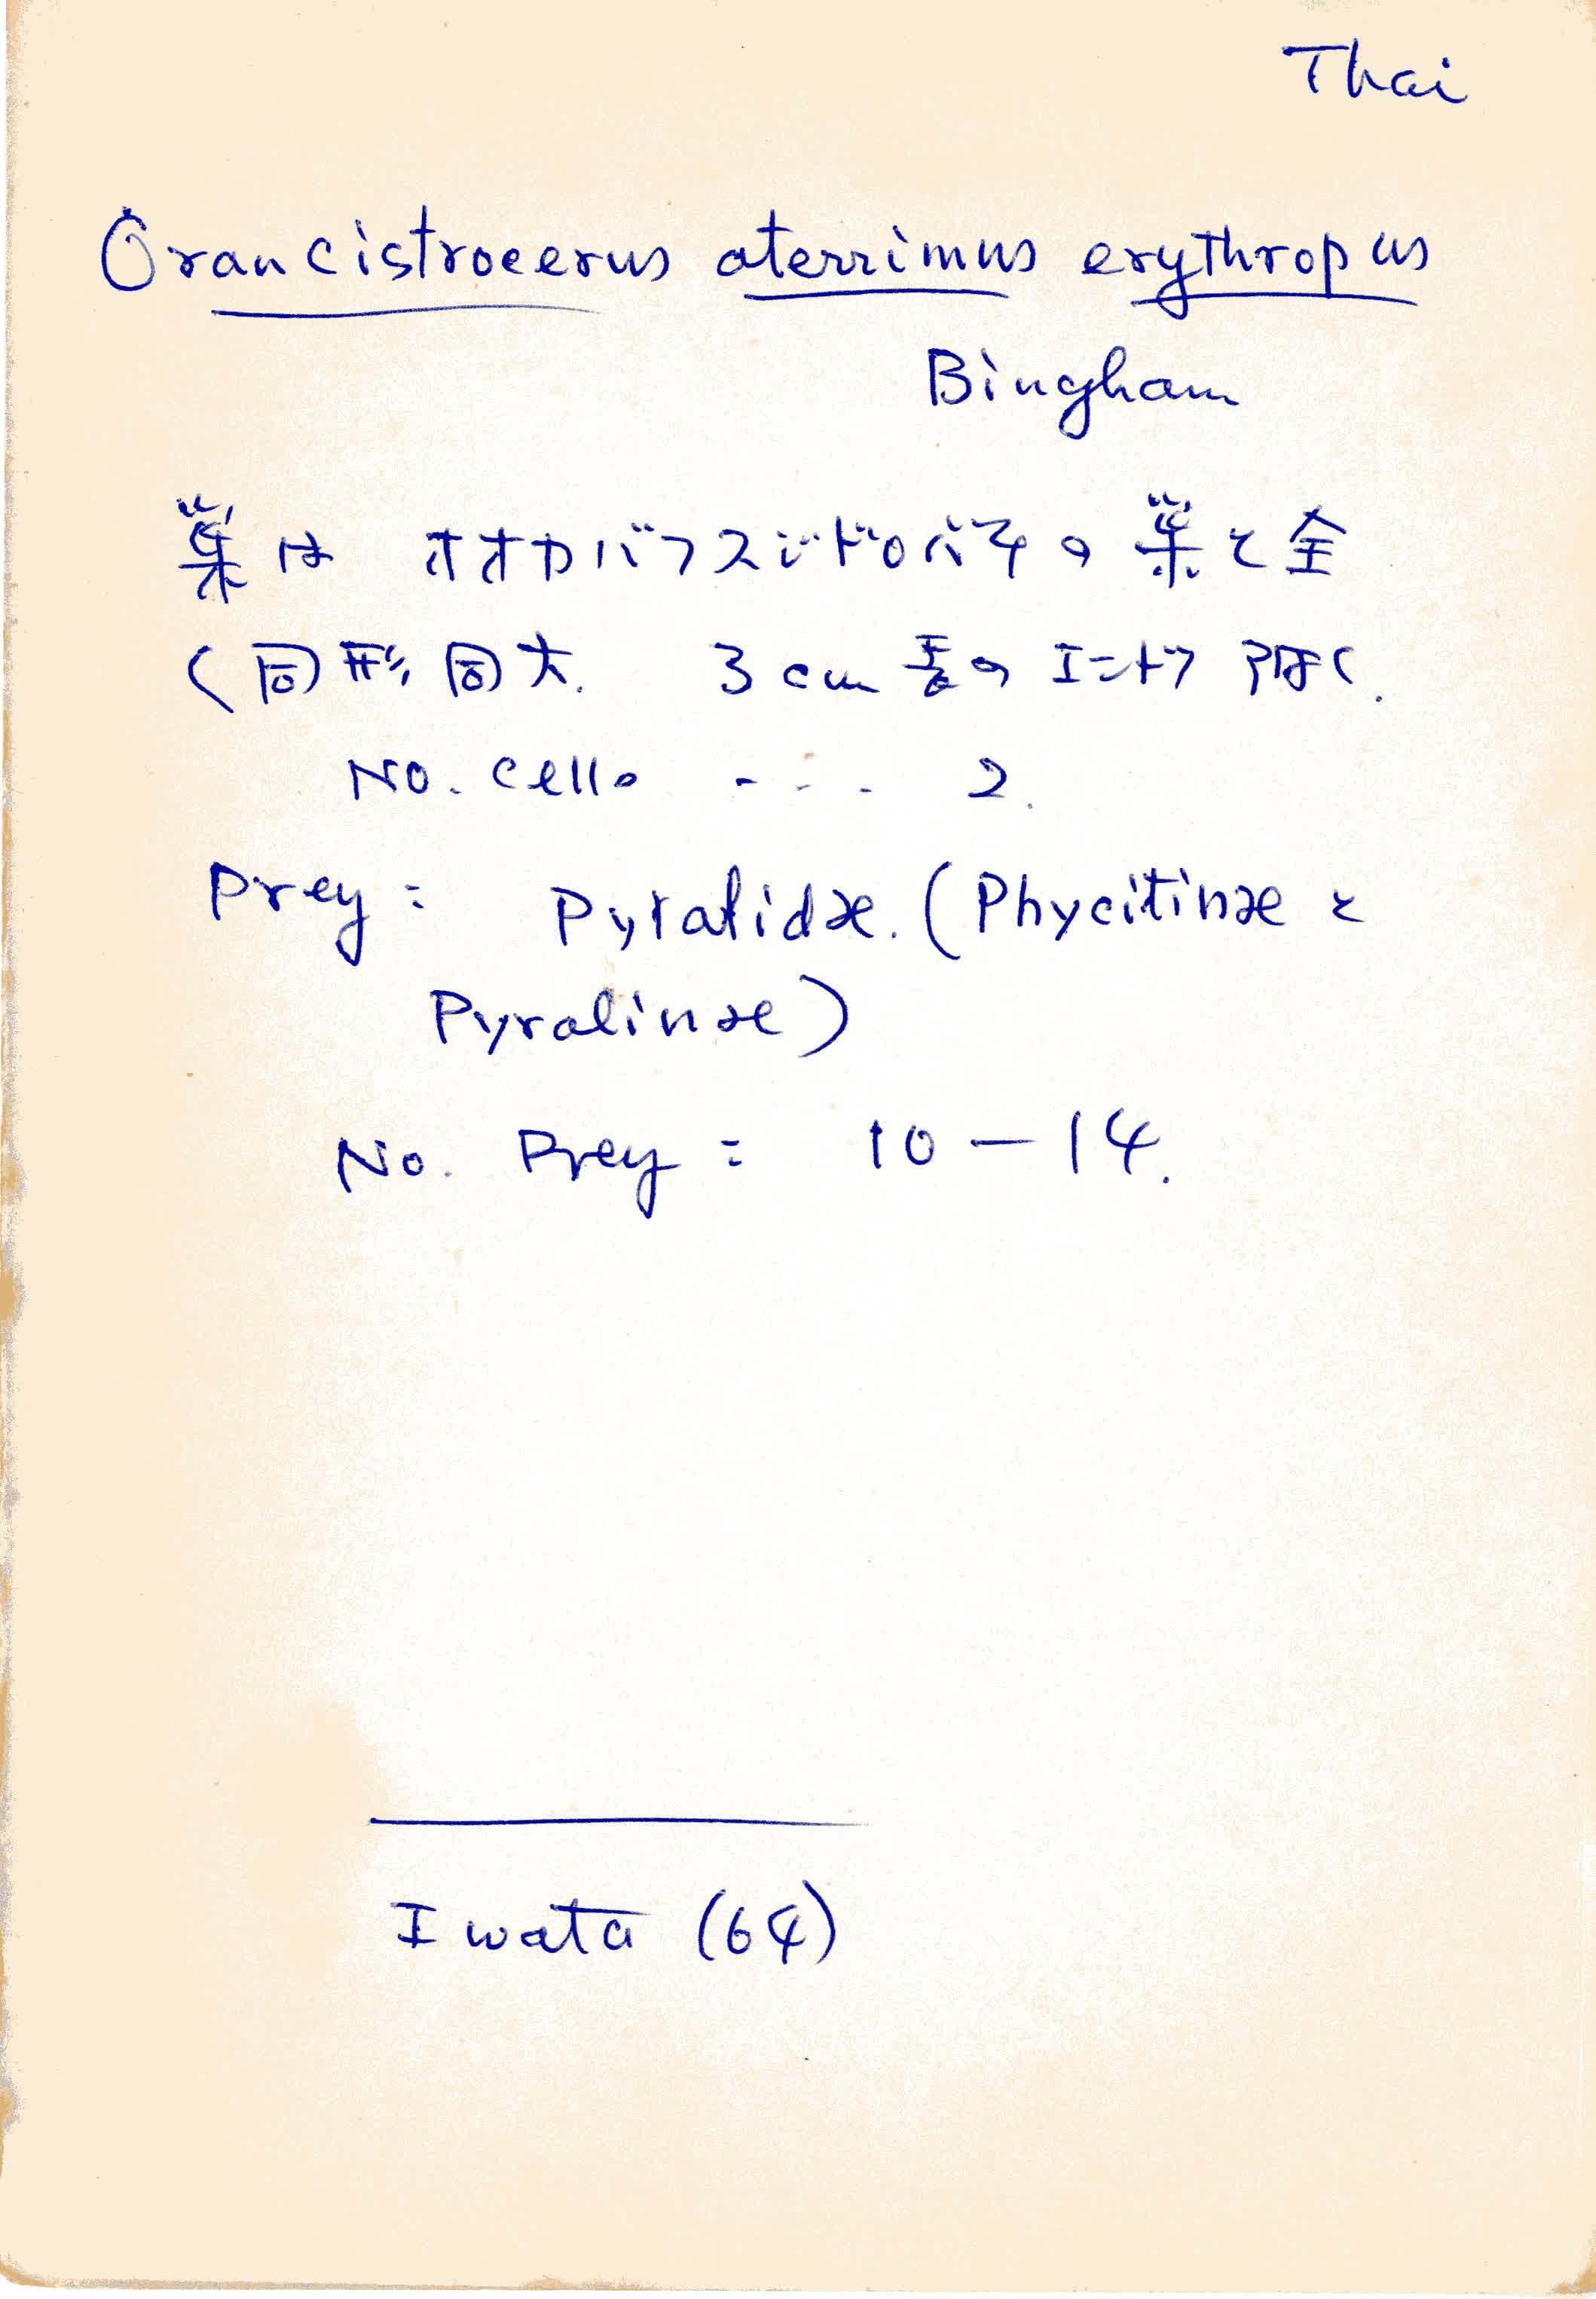 Thai
Orancistrocerus aterrimus erythropus
Bingham
巣は オオカバフスジドロバチの巣と全
く同形同大. 3cm長のエントツ
No. cells - - - . 2.
Prey : Pyralidæ. (Phycitinæ と
Pyralinæ)
No. Prey : 10 — 14.
Iwata (64)